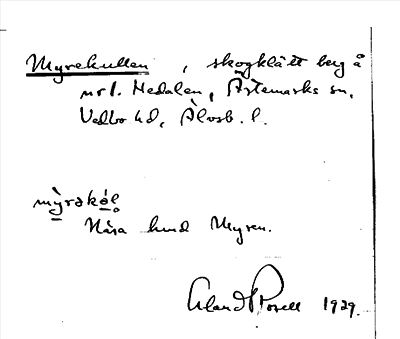 Myrekullen, skogklätt berg å
nrl. Hedalen, Ärtemarks sn,
Vedbo hd, Älvsb. l.
mỳrəkəl̥
Nära kend Myren.
Erland Rosell 1929.